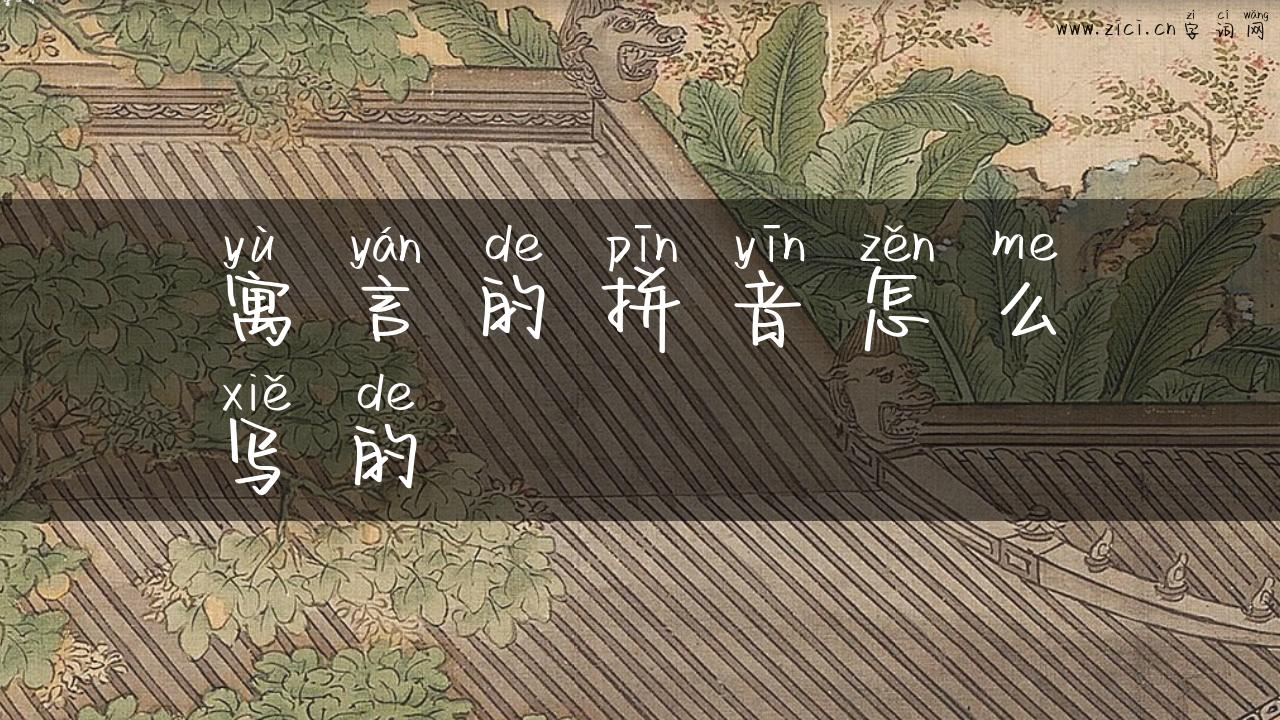 zì cí wǎng
www.zici.cn 字词网
yù yán de pīn yīn zěn me
寓言的拼音怎么
xiě de
写的